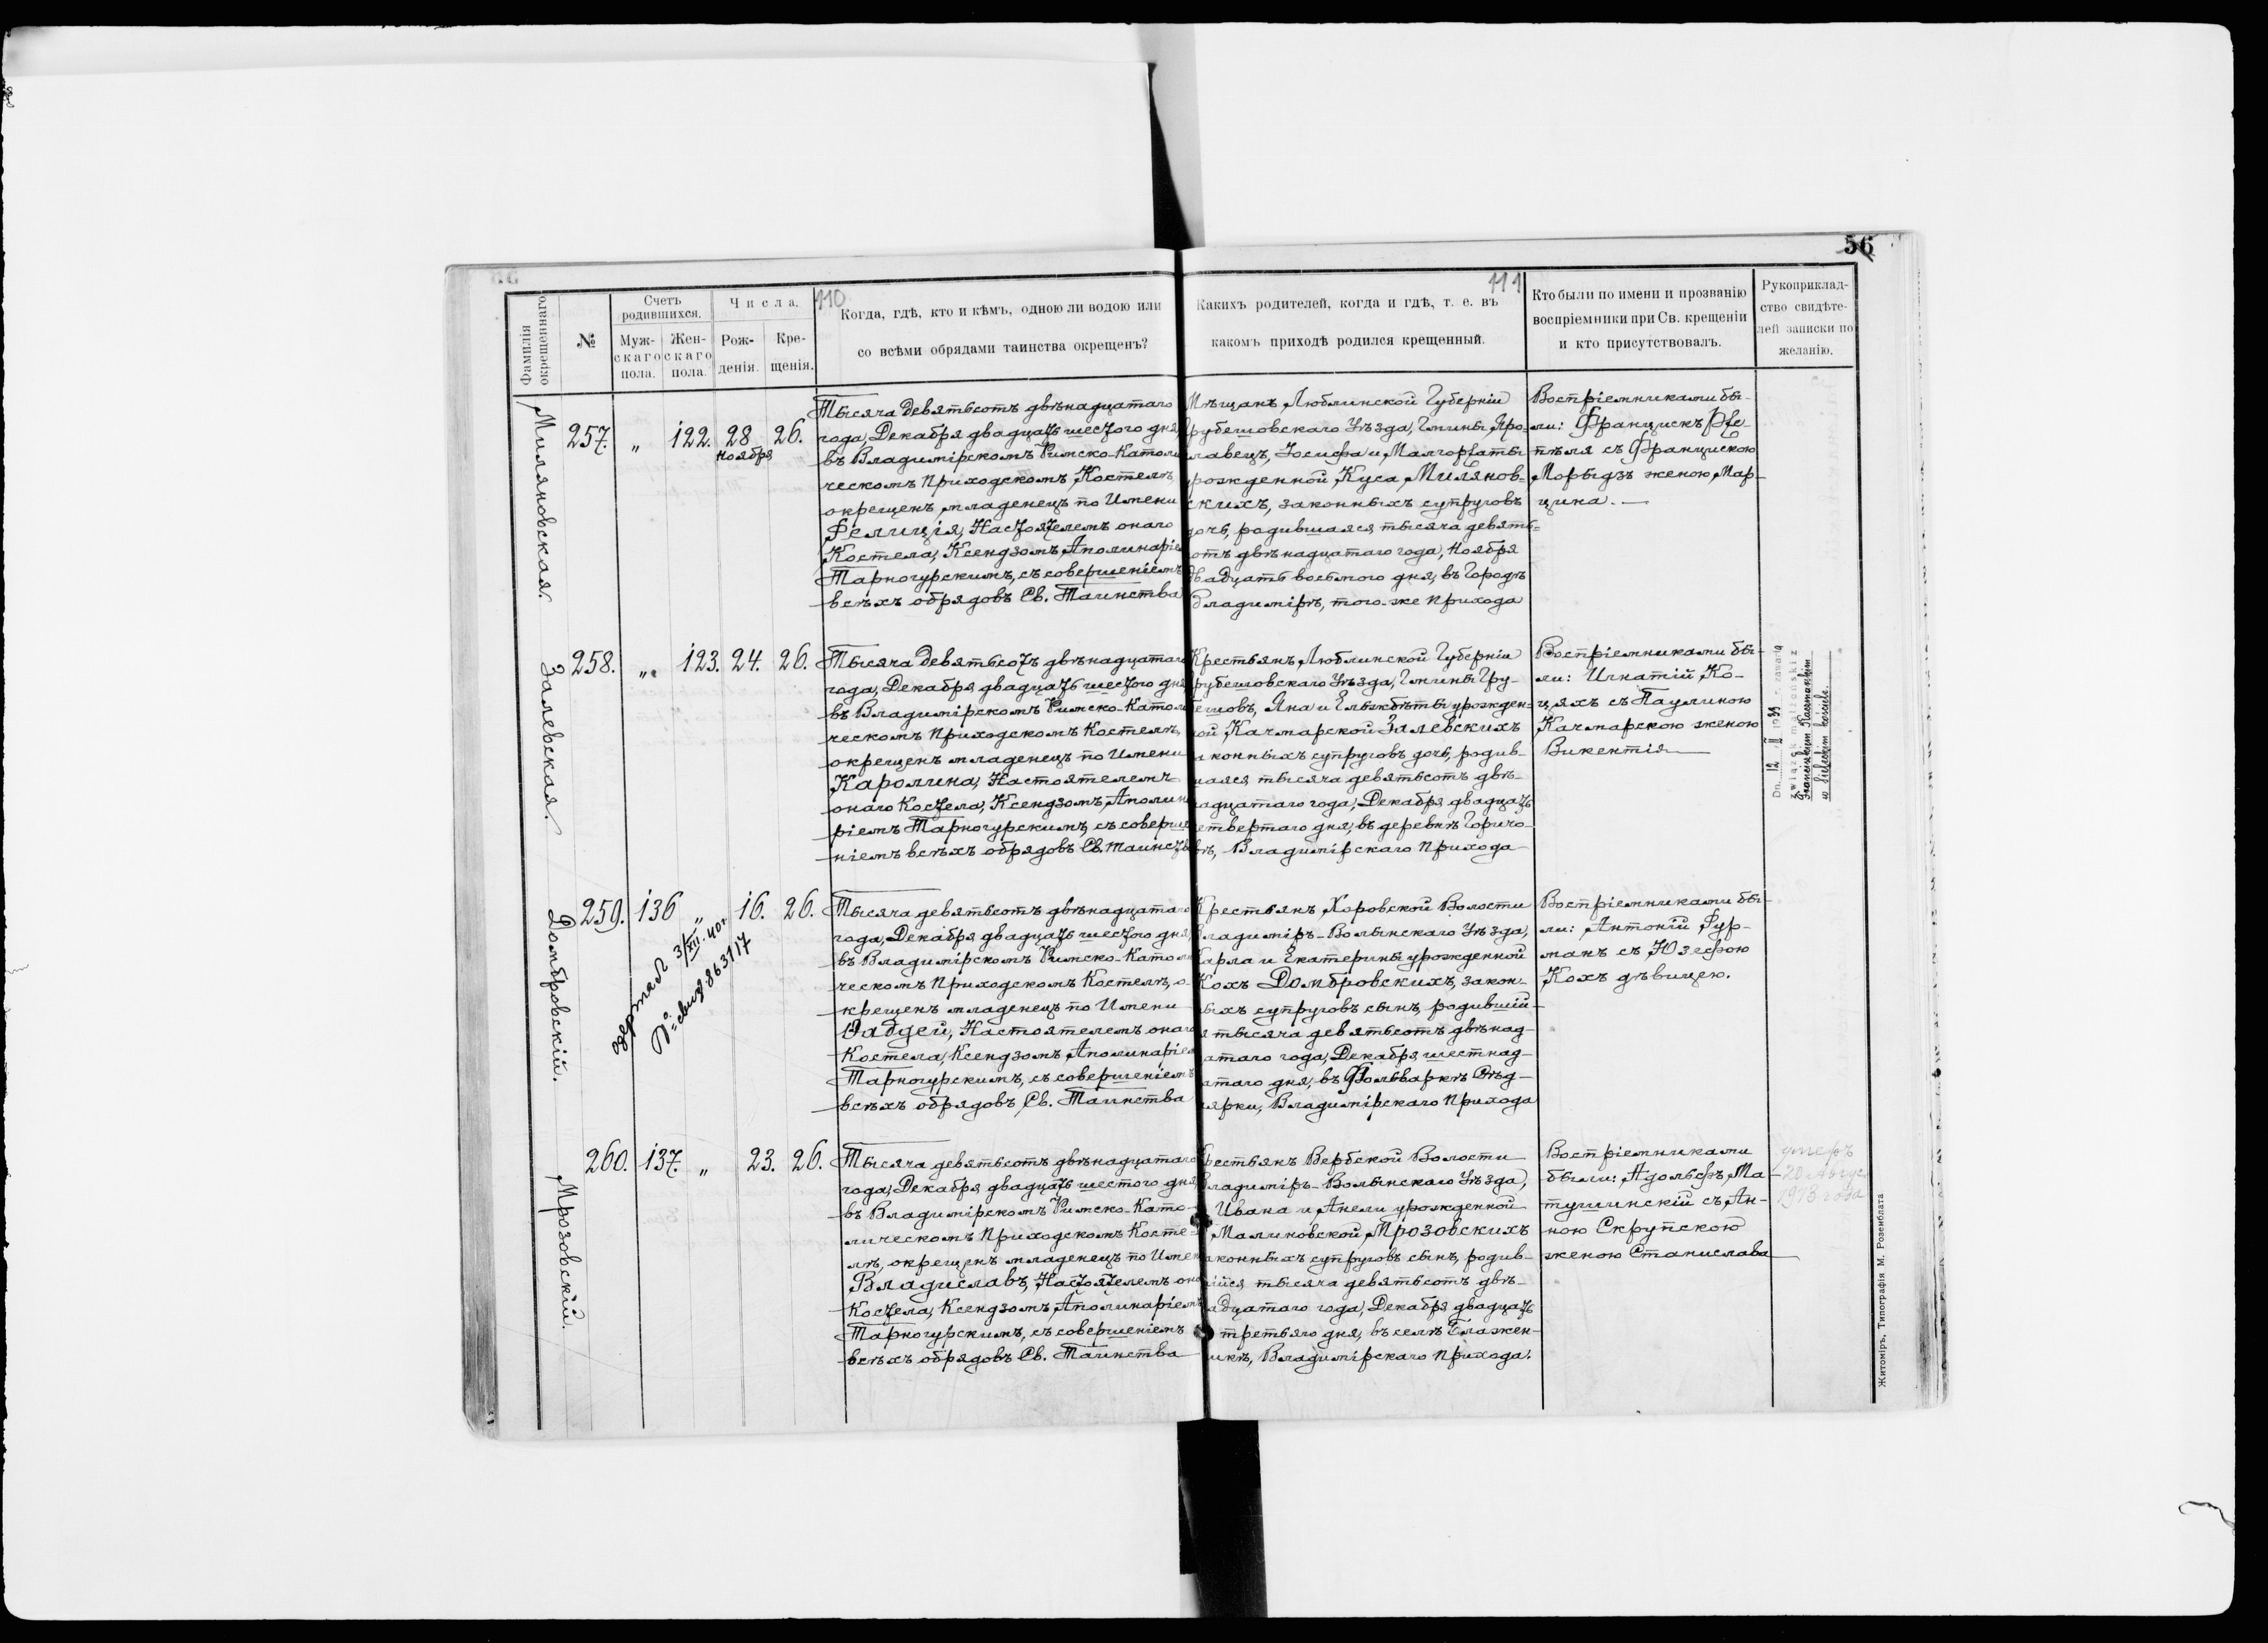 56
110
111
Фамилія окрещеннаго
№
Счетъ родившихся.
Мужскаго пола.
Женскаго пола.
Числа.
Рожденія.
Крещенія.
Когда, гдѣ, кто и кѣмъ, одною ли водою или
со всѣми обрядами таинства окрещенъ?
Какихъ родителей, когда и гдѣ, т. е. въ
какомъ приходѣ родился крещенный.
Кто были по имени и прозванію
воспріемники при Св. крещеніи
и кто присутствовалъ.
Рукоприклад-
ство свидѣте-
лей записки по
желанію.
Миляновская.
257. „ 122. 28 26.
Ноября
Тысяча девятьсотъ двѣнадцатаго
года, Декабря двадцать шестого дня,
въ Владимірскомъ Римско-Католи
ческомъ Приходскомъ Костелѣ,
окрещенъ младенецъ по Имени
Фелиція, Настоятелемъ онаго
Костела, Ксендзомъ Аполинаріе
Тарногурскимъ, съ совершеніемъ
всѣхъ обрядовъ Св. Таинства
Мѣщанъ Люблинской Губерніи
рубешовскаго Уѣзда, Гмины Яро-
лавецъ, Іосифа и Малгоржаты
рожденной Куса Милянов-
скихъ, законныхъ супруговъ
дочь, родившаяся тысяча девять-
отъ двѣнадцатаго года, Ноября
двадцать восьмого дня, въ Городѣ
Владимірѣ, того-же Прихода
Воспріемниками бы-
ли: Францискъ Рже-
пѣля съ Францискою
Морыдзъ женою Мар-
цина.
Залевская.
258. „ 123. 24. 26.
Тысяча девятьсотъ двѣнадцатаго
года, Декабря двадцать шестого дня
въ Владимірскомъ Римско-Катол
ческомъ Приходскомъ Костелѣ,
окрещенъ младенецъ по Имени
Каролина, Настоятелемъ
онаго Костела, Ксендзомъ Аполин
ріемъ Тарногурскимъ, съ соверше
ніемъ всѣхъ обрядовъ Св. Таинств
Крестьянъ Люблинской Губерніи
рубешовскаго Уѣзда, Гмины Гру-
бешовъ, Яна и Ельжбѣты урожден-
ной Качмарской Залевскихъ
аконныхъ супруговъ дочь, родив-
шаяся тысяча девятьсотъ двѣ-
надцатаго года, Декабря двадцать
етвертаго дня, въ деревнѣ Горичо-
вѣ, Владимірскаго Прихода
Воспріемниками бы-
ли: Игнатій Ко-
цяхъ съ Паулиною
Качмарскою женою
Викентія
Dn. 12 II 1939 r. zawarła
związek małżeński z
Franciszkiem Kaczmarskim
w Sieleckim kościele.
Домбровскій.
259. 136 „ 16. 26.
3/XII. 40 г.
№ свид 863117
Тысяча девятьсотъ двѣнадцатаго
года, Декабря двадцать шестого дня,
въ Владимірскомъ Римско-Катол
ческомъ Приходскомъ Костелѣ, о-
крещенъ младенецъ по Имени
Фаддей, Настоятелемъ онаго
Костела, Ксендзомъ Аполинаріем
Тарногурскимъ, съ совершеніемъ
всѣхъ обрядовъ Св. Таинства
Крестьянъ Хоровской Волости
Владиміръ-Волынскаго Уѣзда,
Карла и Екатерины урожденной
Кохъ Домбровскихъ, закон-
ыхъ супруговъ сынъ, родившій-
я тысяча девятьсотъ двѣнад-
атаго года, Декабря шестнад-
атаго дня, въ Фольваркѣ Сѣд-
лярки, Владимірскаго Прихода
Воспріемниками бы-
ли: Антоній Фур-
манъ съ Юзефою
Кохъ дѣвицею.
Мрозовскій.
260. 137. „ 23. 26.
Тысяча девятьсотъ двѣнадцатаго
года, Декабря двадцать шестого дня,
въ Владимірскомъ Римско-Като-
лическомъ Приходскомъ Косте-
лѣ, окрещенъ младенецъ по Имен
Владиславъ, Настоятелемъ она
Костела, Ксендзомъ Аполинаріемъ
Тарногурскимъ, съ совершеніемъ
всѣхъ обрядовъ Св. Таинства
рестьянъ Вербской Волости
Владиміръ-Волынскаго Уѣзда,
Ивана и Анели урожденной
Малиновской, Мрозовскихъ
аконныхъ супруговъ сынъ, родив-
шійся тысяча девятьсотъ двѣ-
адцатаго года, Декабря двадцать
третьяго дня, въ селѣ Блажен-
икѣ, Владимірскаго Прихода.
Воспріемниками
были: Адольфъ Ма-
тушинскій съ Ан-
ною Скрупскою
женою Станислава
умеръ
20 Август
1913 года
Житоміръ, Типографія М. Розенблата